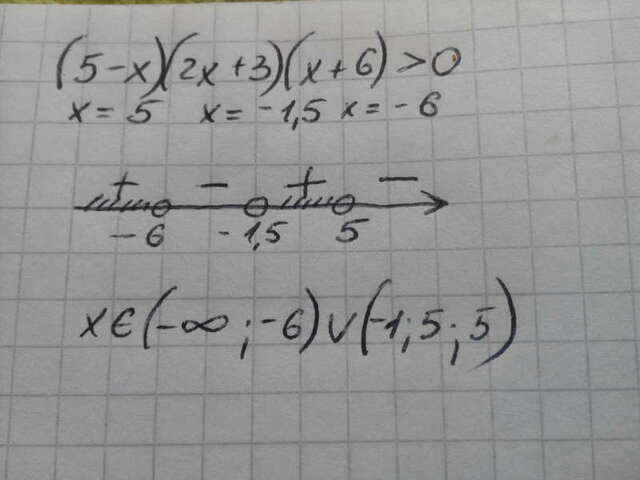 (5-x)(2x+3)(x+6)>0
x=5 x=-1,5 x=-6
+ - + -
-6 -1,5 5
x∈(-∞;-6)∪(-1;5;5)